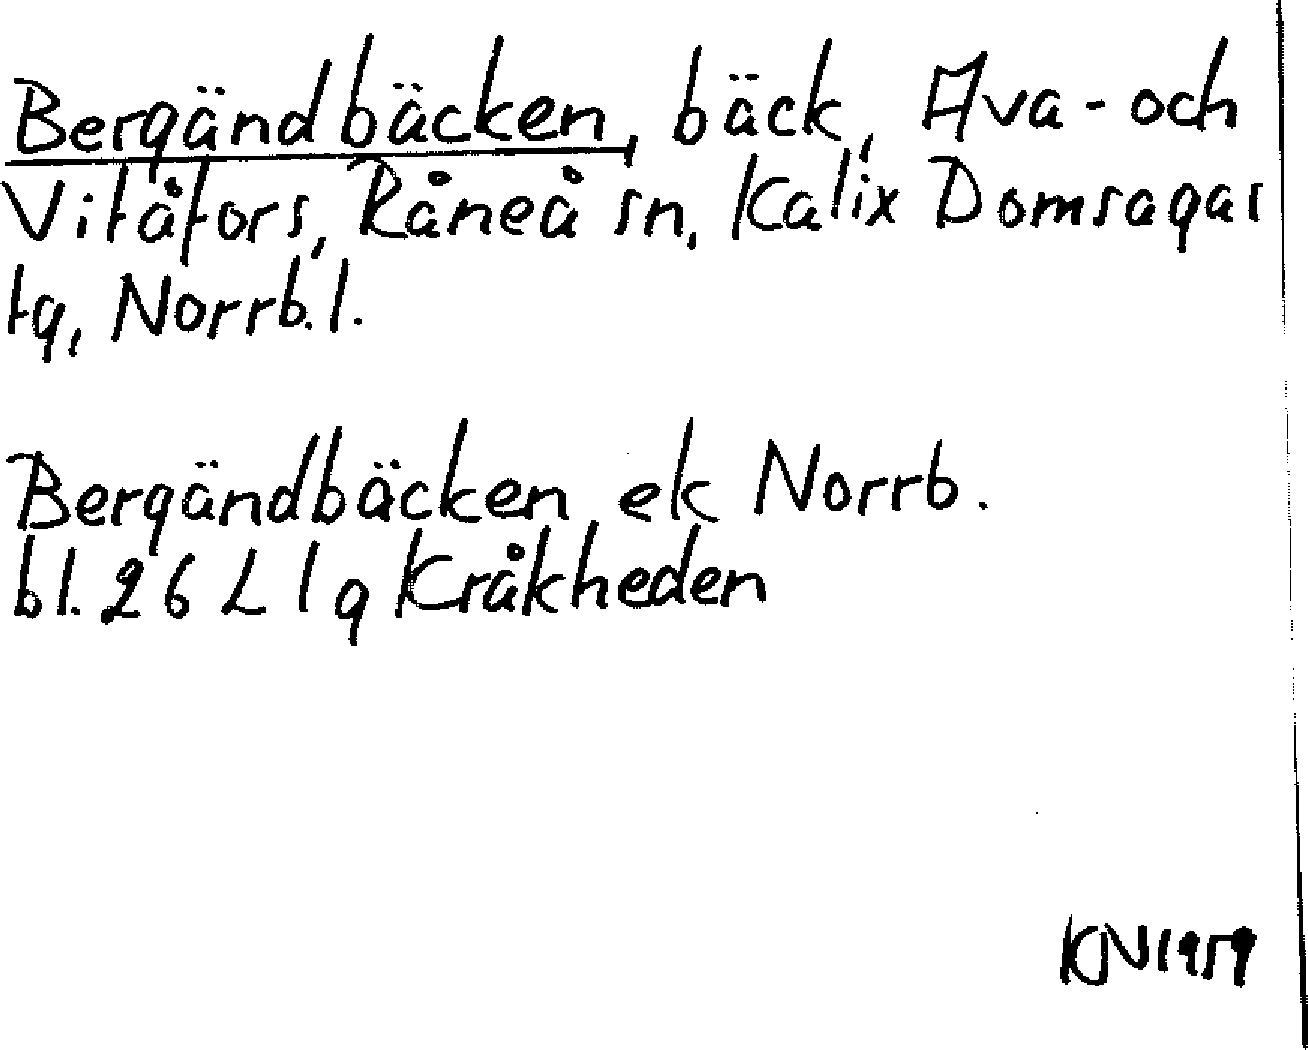 Bergändbäcken, bäck, Ava- och
Vitåfors, Råneå sn, Kalix Domsagas
tg, Norrb. l.
Bergändbäcken ek Norrb.
bl. 26 L l g Kråkheden
KJN 1959